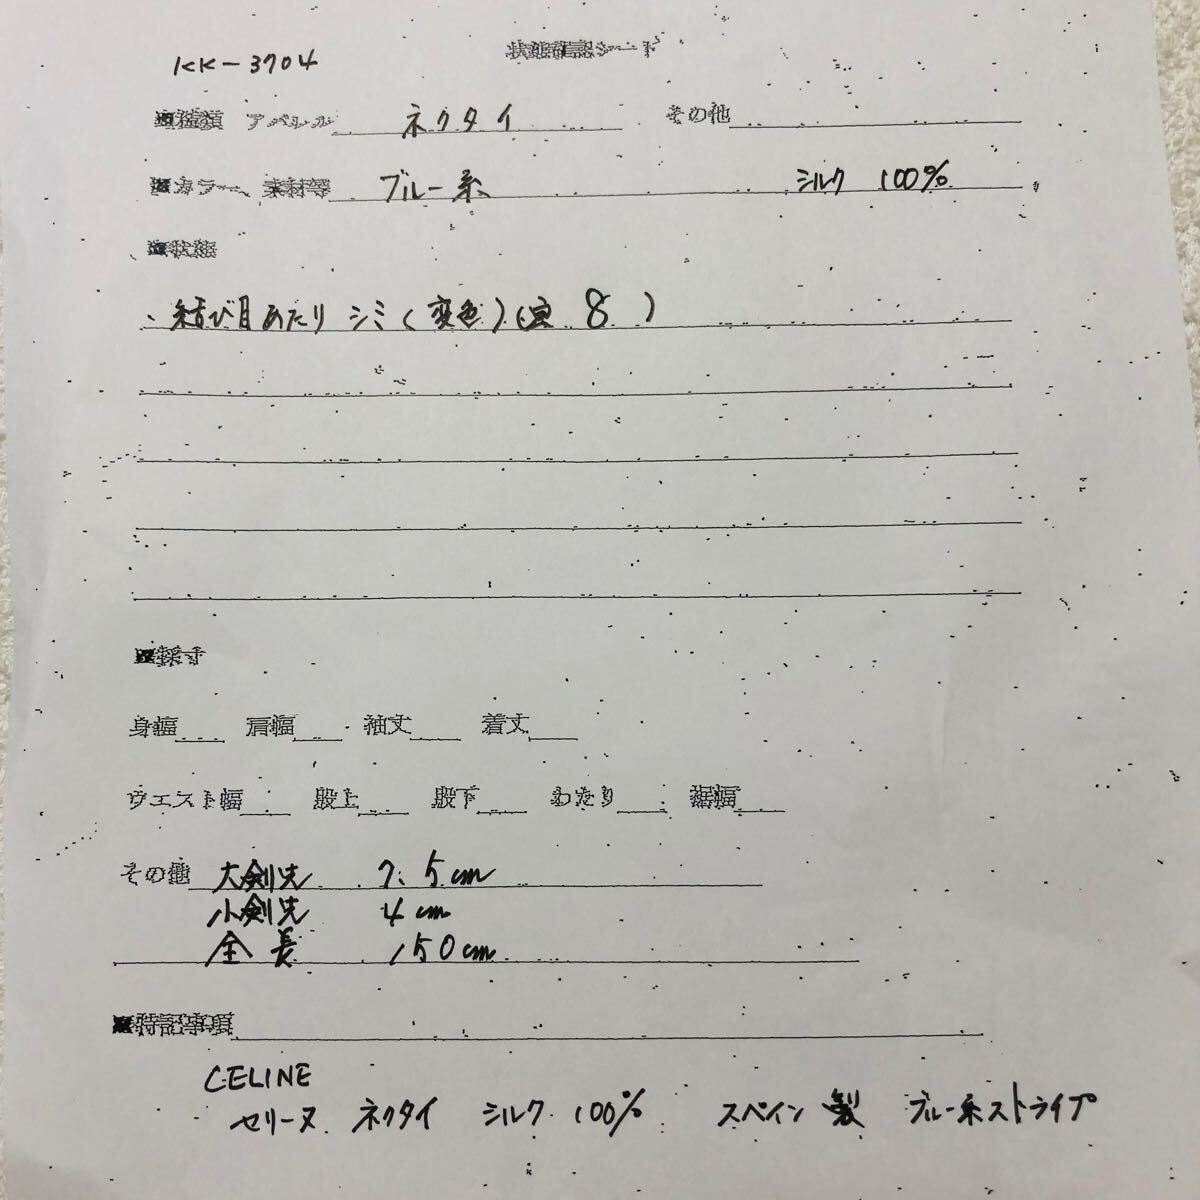 KK-3704
状態確認シート
■種類 アパレル ネクタイ その他
■カラー、素材等 ブルー系 シルク 100%
■状態
、結び目あたり シミ(変色)( 8 )
■採寸
身幅 肩幅 袖丈 着丈
ウエスト幅 股上 股下 わたり 裾幅
その他 大剣先 7.5cm
小剣先 4cm
全長 150cm
■特記事項
CELINE
セリーヌ ネクタイ シルク 100% スペイン製 ブルー系ストライプ